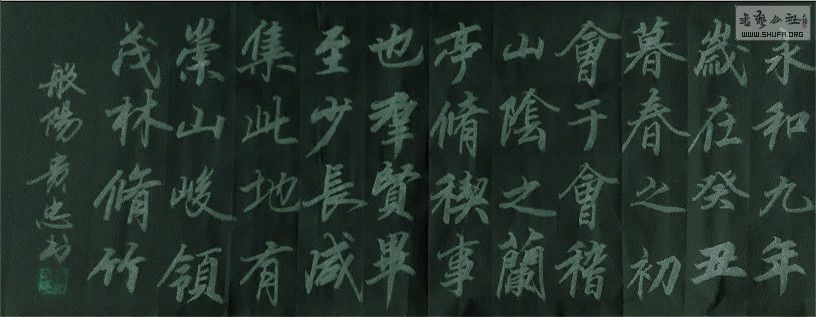 永和九年
歲在癸丑
暮春之初
會于會稽
山陰之蘭
亭脩禊事
也羣賢畢
至少長咸
集此地有
崇山峻領
茂林脩竹
般陽
书艺公社
WWW.SHUFA.ORG